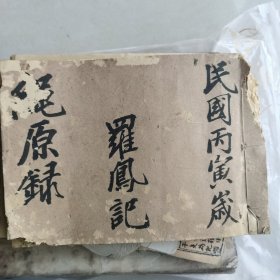 民國丙寅歲
羅鳳記
絕原録